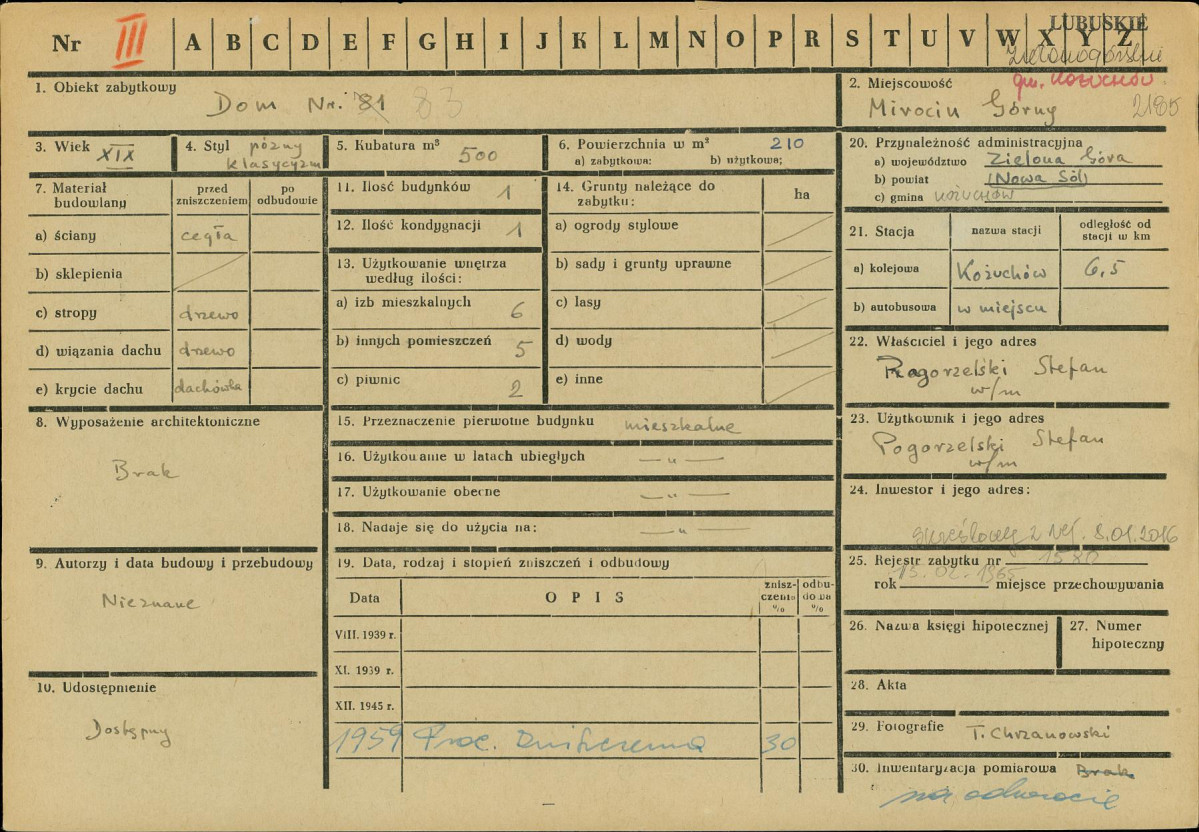 LUBUSKIE
Nr III A B C D E F G H I J K L M N O P R S T U V W X Y Z
Zielonogórskie
gm. KOŻUCHÓW
1. Obiekt zabytkowy
Dom Nr. 81 83
2. Miejscowość
Mirocin Górny 2185
3. Wiek XIX
4. Styl późny
klasycyzm
5. Kubatura m³ 500
6. Powierzchnia w m² 210
a) zabytkowa: b) użytkowa;
20. Przynależność administracyjna
a) województwo Zielona Góra
b) powiat (Nowa Sól)
c) gmina KOŻUCHÓW
7. Materiał budowlany
przed zniszczeniem
po odbudowie
a) ściany cegła
b) sklepienia
c) stropy drzewo
d) wiązania dachu drzewo
e) krycie dachu dachówka
11. Ilość budynków 1
12. Ilość kondygnacji 1
13. Użytkowanie wnętrza
według ilości:
a) izb mieszkalnych 6
b) innych pomieszczeń 5
c) piwnic 2
14. Grunty należące do
zabytku: ha
a) ogrody stylowe
b) sady i grunty uprawne
c) lasy
d) wody
e) inne
21. Stacja
nazwa stacji
odległość od
stacji w km
a) kolejowa Kożuchów 6,5
b) autobusowa w miejscu
22. Właściciel i jego adres
Pogorzelski Stefan
w/m
8. Wyposażenie architektoniczne
Brak
15. Przeznaczenie pierwotne budynku mieszkalne
16. Użytkowanie w latach ubiegłych — „ —
17. Użytkowanie obecne — „ —
18. Nadaje się do użycia na: — „ —
23. Użytkownik i jego adres
Pogorzelski Stefan
w/m
24. Inwestor i jego adres:
skreślony z rej. 8.01.2016
9. Autorzy i data budowy i przebudowy
Nieznane
19. Data, rodzaj i stopień zniszczeń i odbudowy
Data
OPIS
znisz-
czenia
%
odbu-
dowa
%
VIII. 1939 r.
XI. 1939 r.
XII. 1945 r.
1959 Proc. zniszczenia 30
25. Rejestr zabytku nr 1580
rok 15.02.1965 miejsce przechowywania
26. Nazwa księgi hipotecznej
27. Numer
hipoteczny
10. Udostępnienie
Dostępny
28. Akta
29. Fotografie T. Chrzanowski
30. Inwentaryzacja pomiarowa Brak
na odwrocie